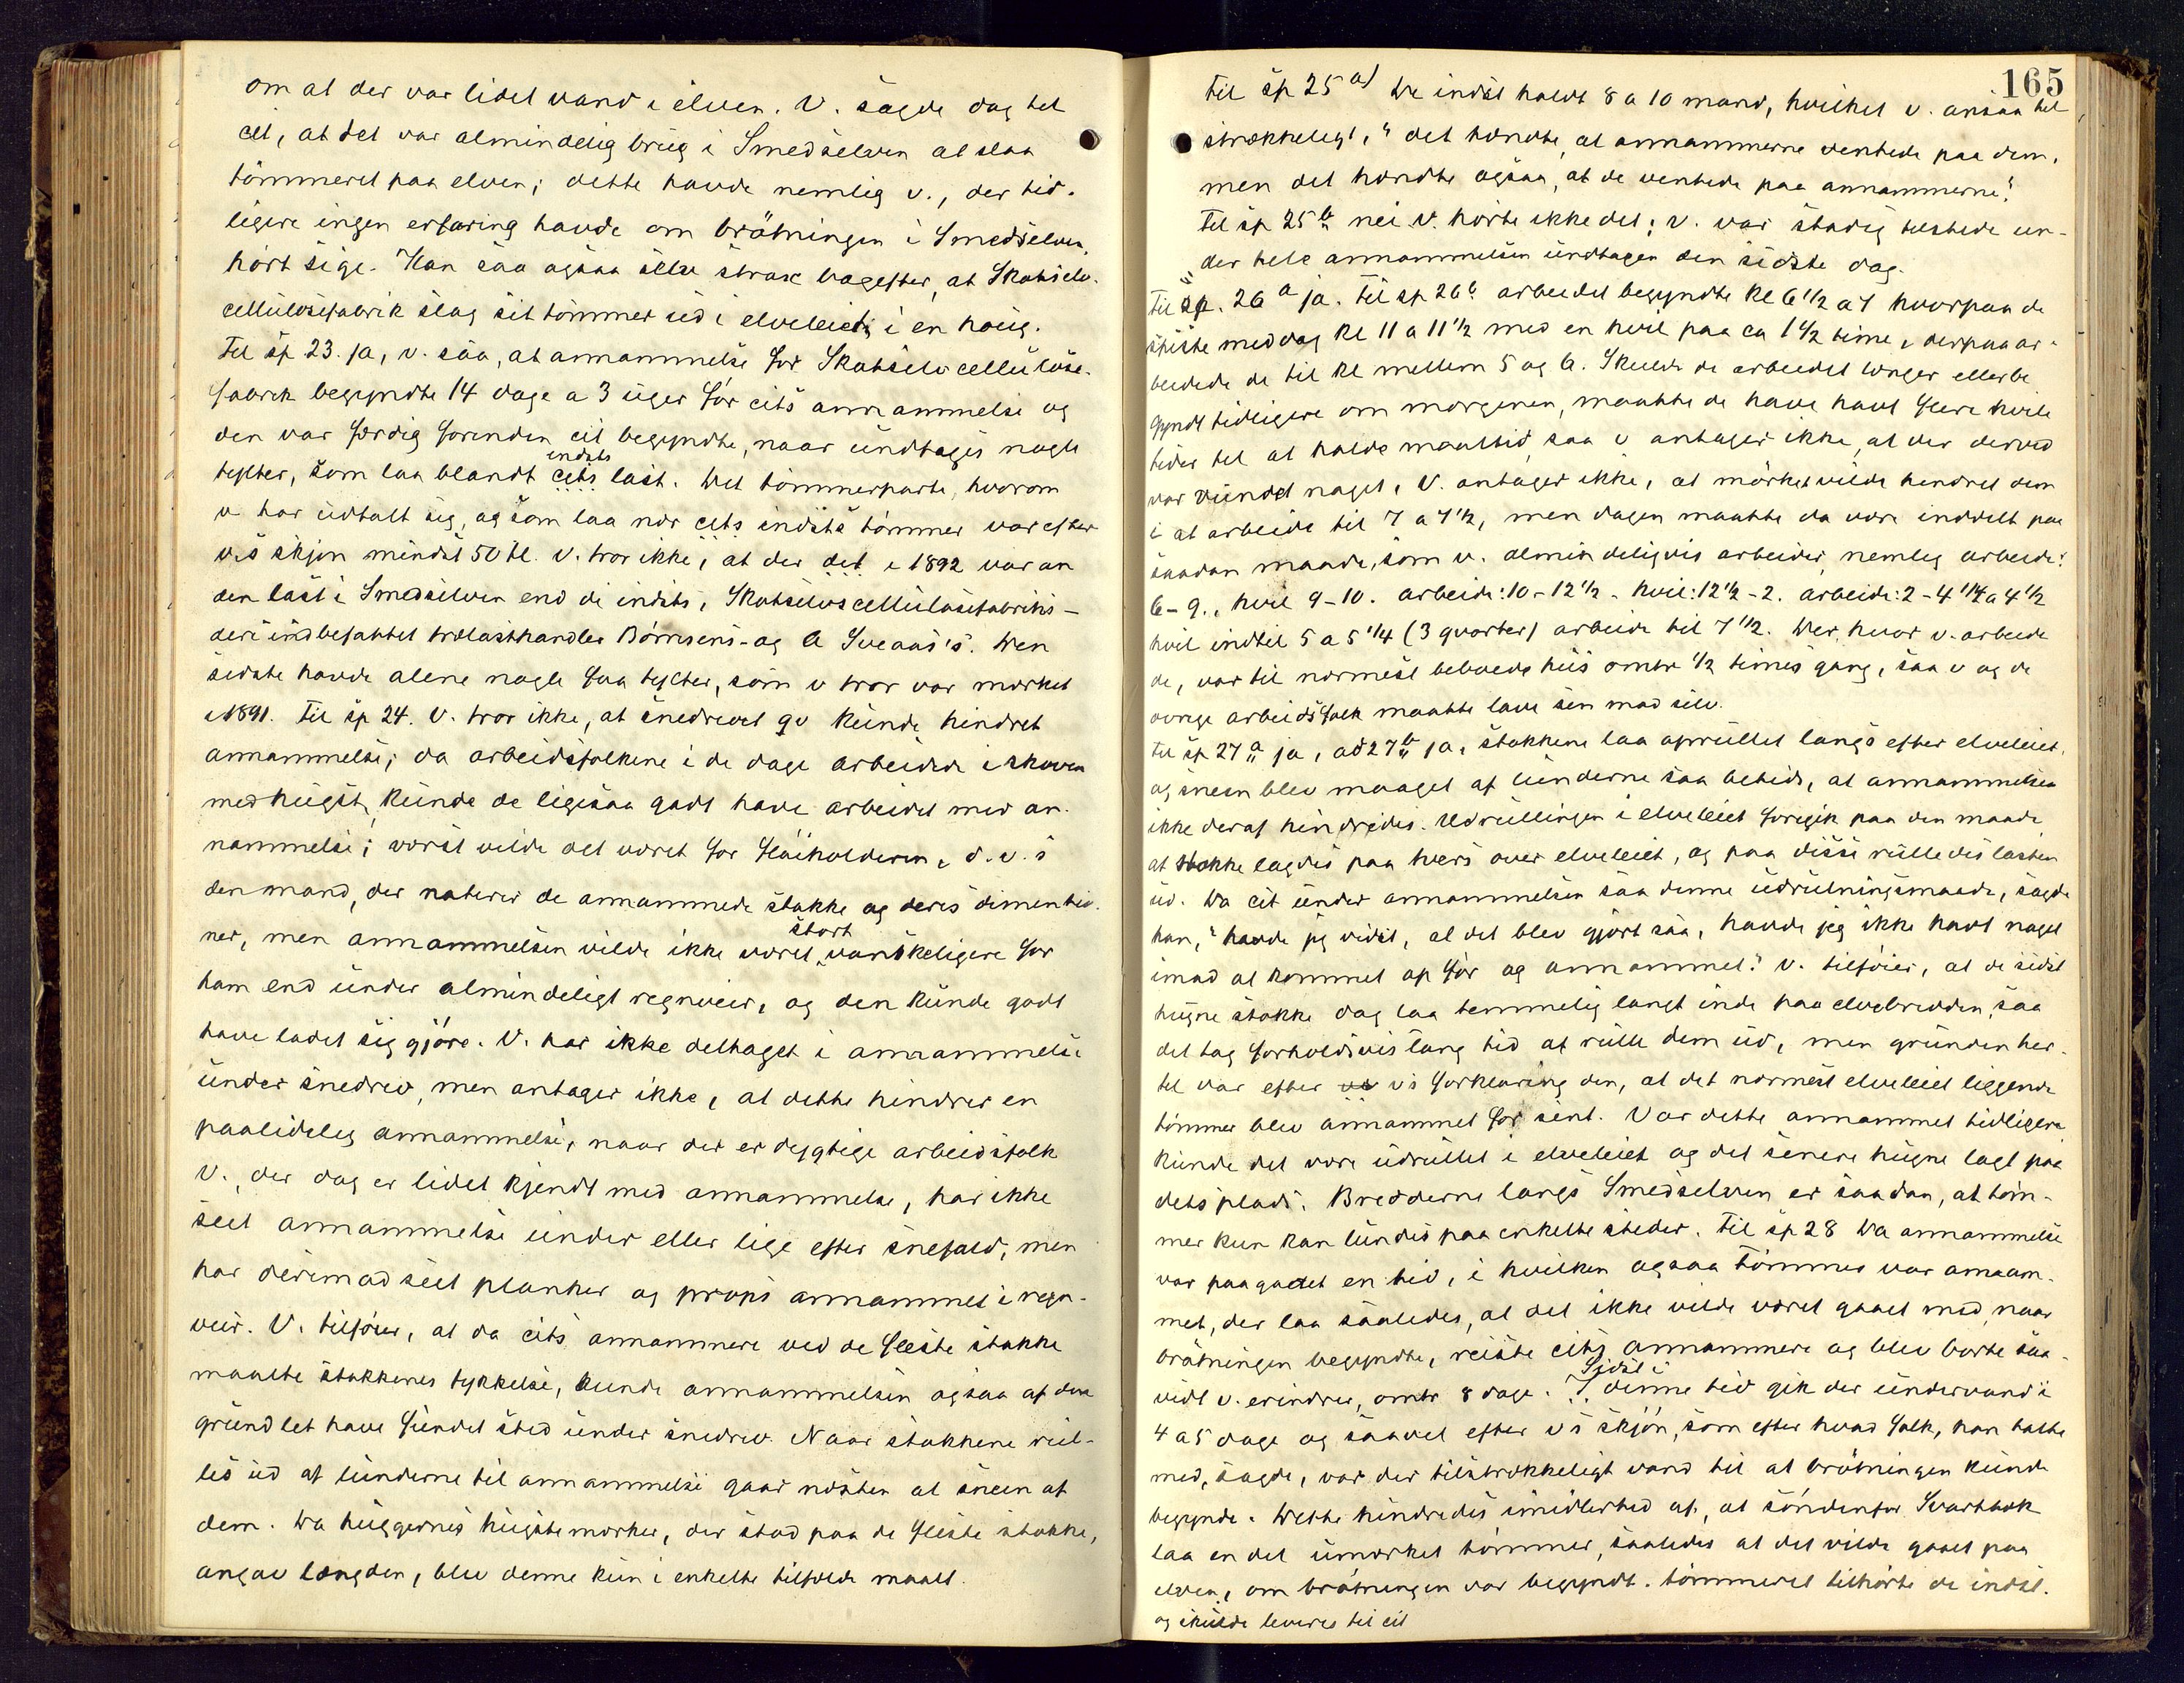 om at der var lidet vand i elven. V. sagde dog til
cit, at det var almindelig brug i Smedselven at slaa
tømmeret paa elven; dette havde nemlig v., der tid-
ligere ingen erfaring havde om brøtningen i Smedselven,
hørt sige. Han saa ogsaa selv strax bagefter, at Skotselv
cellulosefabrik slog sit tømmer ud i elveleiet i en houg.
Til sp 23. ja, v. saa, at annammelse for Skotselv cellulose-
fabrik begyndte 14 dage a 3 uger før cits annammelse og
den var færdig forinden cit begyndte, naar undtages nogle
tylter, som laa blandt cits indsts last. Det tømmerparti, hvorom
v har udtalt sig, og som laa nær cits indsts tømmer var efter
v's skjøn mindst 50 tl. V. tror ikke, at der det i 1892 var an
den last i Smedselven end de indsts, Skotselvs cellulosefabriks -
deri indbefattet trælasthandler Børresens - og A Sveaas's. Den
sidste havde alene nogle faa tylter, som v tror var mærket
i 1891. Til sp 24. V. tror ikke, at snedrevet qv kunde hindret
annammelse; da arbeidsfolkene i de dage arbeidede i skoven
med hugst, kunde de ligesaa godt have arbeidet med an-
nammelse; værst vilde det været for  d. v. s
den mand, der noterer de annammede stokke og deres dimentio-
ner, men annammelsen vilde ikke været stort vanskeligere for
ham end under almindeligt regnveir, og den kunde godt
have ladet sig gjøre. V. har ikke deltaget i annammelse
under snedrev, men antager ikke, at dette hindrer en
paalidelig annammelse, naar der er dygtige arbeidsfolk
V., der dog er lidet kjendt med annammelse, har ikke
seet annammelse under eller lige efter snefald, men
har derimod seet planker og props annammet i regn-
veir. V. tilføier, at da cits annammere ved de fleste stokke
maalte stokkenes tykkelse, kunde annammelsen ogsaa af den
grund let have fundet sted under snedrev. Naar stokkene rul-
les ud af lunderne til annammelse gaar næsten al sneen af
dem. Da huggernes hugstemærker, der stod paa de fleste stokke,
angav længden, blev denne kun i enkelte tilfælde maalt.
165
til sp 25 a) De indst holdt 8 a 10 mand, hvilket v. ansaa til
strækkeligt, "det hændte, at annammerne ventede paa dem,
men det hændte ogsaa, at de ventede paa annammerne."
Til sp 25 b nei v. hørte ikke det; v. var stadig tilstede un-
der hele annammelsen undtagen den sidste dag.
Til sp. 26 a ja. Til sp 26 b arbeidet begyndte kl 6 1/2 a 7 hvorpaa de
spiste middag kl 11 a 11 1/2 med en hvil paa ca 1 1/2 time, derpaa ar-
beidede de til kl mellem 5 og 6. Skulde de arbeidet længer eller be
gyndt tidligere om morgenen, maatte de have havt flere hvile
tider til at holde maaltid, saa v antager ikke, at der derved
var vundet noget, V. antager ikke, at mørket vilde hindret dem
i at arbeide til 7 a 7 1/2, men dagen maatte da være inddelt paa
saadan maade, som v. almindeligvis arbeider, nemlig arbeide:
6 - 9., hvil 9 - 10. arbeide: 10 - 12 1/2 - hvil: 12 1/2 - 2. arbeide: 2 - 4 1/4 a 4 1/2
hvil indtil 5 a 5 1/4 (3 qvarter) arbeide til 7 1/2. Der, hvor v. arbeide
de, var til nærmest beboede hus omtr 1/2 times gang, saa v og de
øvrige arbeidsfolk maatte lave sin mad selv.
til sp 27 a ja, ad 27 b ja, stokkene laa oprullet langs efter elveleiet,
og sneen blev maaget af lunderne saa betids, at annammelsen
ikke deraf hindredes. Udrullingen i elveleiet foregik paa den maade
at stokke lagdes paa tvers over elveleiet, og paa disse rulledes lasten
ud. Da cit under annammelsen saa denne udrulningsmaade, sagde
han, "havde jeg vidst, at det blev gjort saa, havde jeg ikke havt noget
imod at kommet op før og annammet." V. tilføier, at de sidst
hugne stokke dog laa temmelig langt inde paa elvebredden, saa
det tog forholdsvis lang tid at rulle dem ud, men grunden her-
til var efter v's forklaring den, at det nærmest elveleiet liggende
tømmer blev annammet for sent. Var dette annammet tidligere
kunde det være udrullet i elveleiet og det senere hugne lagt paa
dets plads. Bredderne langs Smedselven er saadan, at tøm-
mer kun kan lundes paa enkelte steder. Til sp 28 Da annammelse
var paagaaet en tid, i hvilken ogsaa tømmer var annam-
met, der laa saaledes, at det ikke vilde været gaaet med, naar
brøtningen begyndte, reiste cits annammere og blev borte saa-
vidt v. erindrer, omtr 8 dage. I Sidst i denne tid gik der undervand i
4 a 5 dage og saavel efter v's skjøn, som efter hvad folk, han talte
med, sagde, var der tilstrækkeligt vand til at brøtningen kunde
begynde. Dette hindredes imidlertid af, at søndenfor Svartbæk
laa en del umærket tømmer, saaledes at det vilde gaaet paa
elven, om brøtningen var begyndt. tømmeret tilhørte de indst.
og skulde leveres til cit